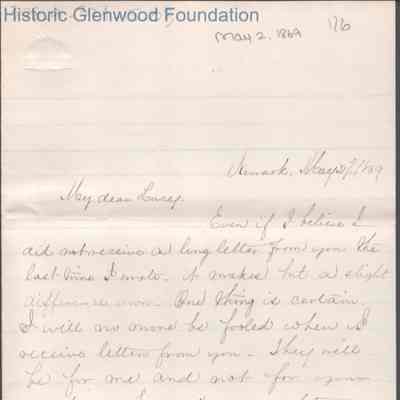 Historic Glenwood Foundation
May 2, 1869
176
Newark, May 2nd, 1869
My dear Lucy,
Even if I believe I
did not receive a long letter from you the
last time I wrote. It makes but a slight
difference now. One thing is certain.
I will no more be fooled when I
receive letters from you. They will
be for me and not for